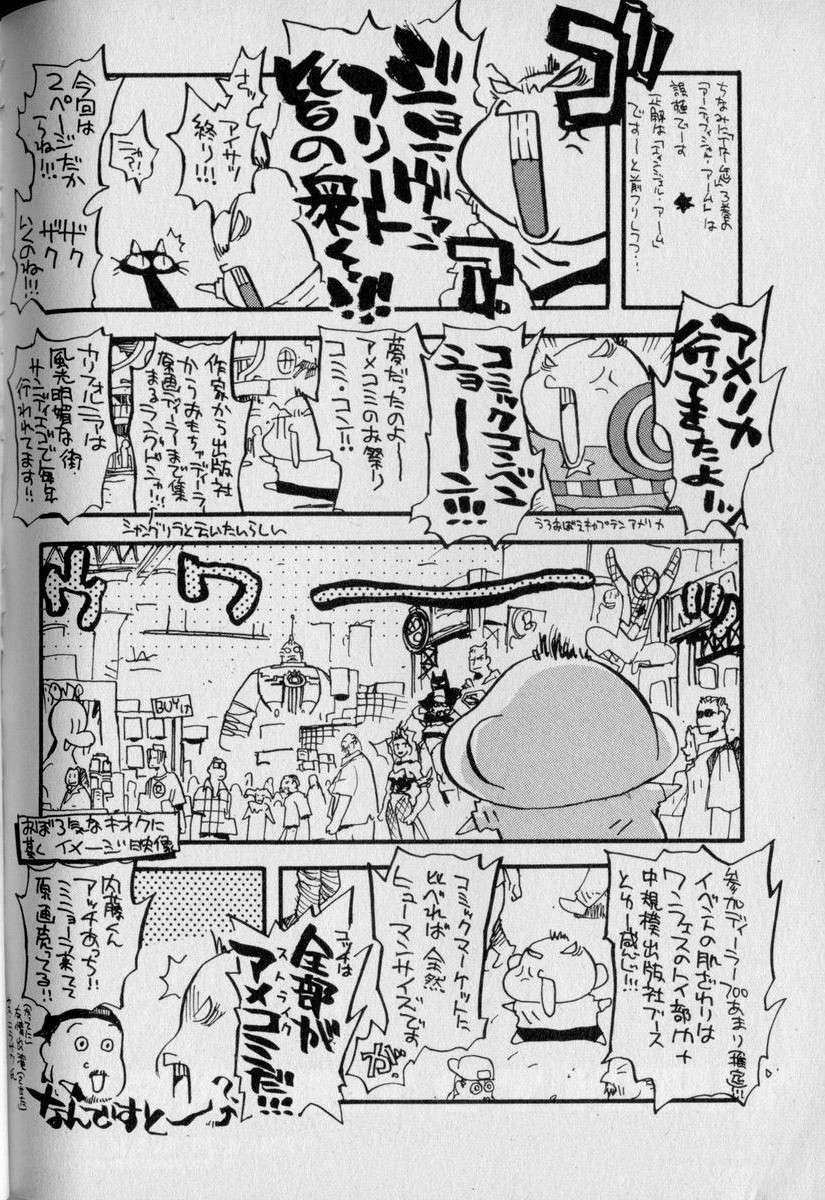 ちなみに
3巻の
「アーティフィシャル・アーム」は
誤植です
ですーと前フリしつつ…
ジョン・ヴァン
フリート
皆の衆く!!!
さっ
アイサツ
終り!!!
今回は
2ページだか
らね!!!
ザク
ザク
いくのね!!!
アメリカ
行ってきたよー!!
うろおぼえキャプテンアメリカ
コミックコンベン
ショーーン!!!
夢だったのよー
アメコミのお祭り
コミ・コン!!
作家から出版社
からおもちゃディーラー
原画ディーラーまで集
まるラングドシャ!!!
シャングリラと云いたいらしい
カリフォルニアは
風光明媚な街・
サンディエゴで毎年
行われてます!!
ウワーー
BUY
おぼろ気なキオクに
基くイメージ映像
参加ディーラー700あまり(推定)!!
イベントの肌ざわりは
ワンフェスのトイ部門+
中規模出版社ブース
とゆー感じ!!!
コミックマーケットに
比べれば全然
ヒューマンサイズです
が!!
コッチは
全部が
ストライク
アメコミだ!!!
内藤くん
アッチあっち!!
ミニョーラ来てて
原画売ってる!!
なんですと
ーっ